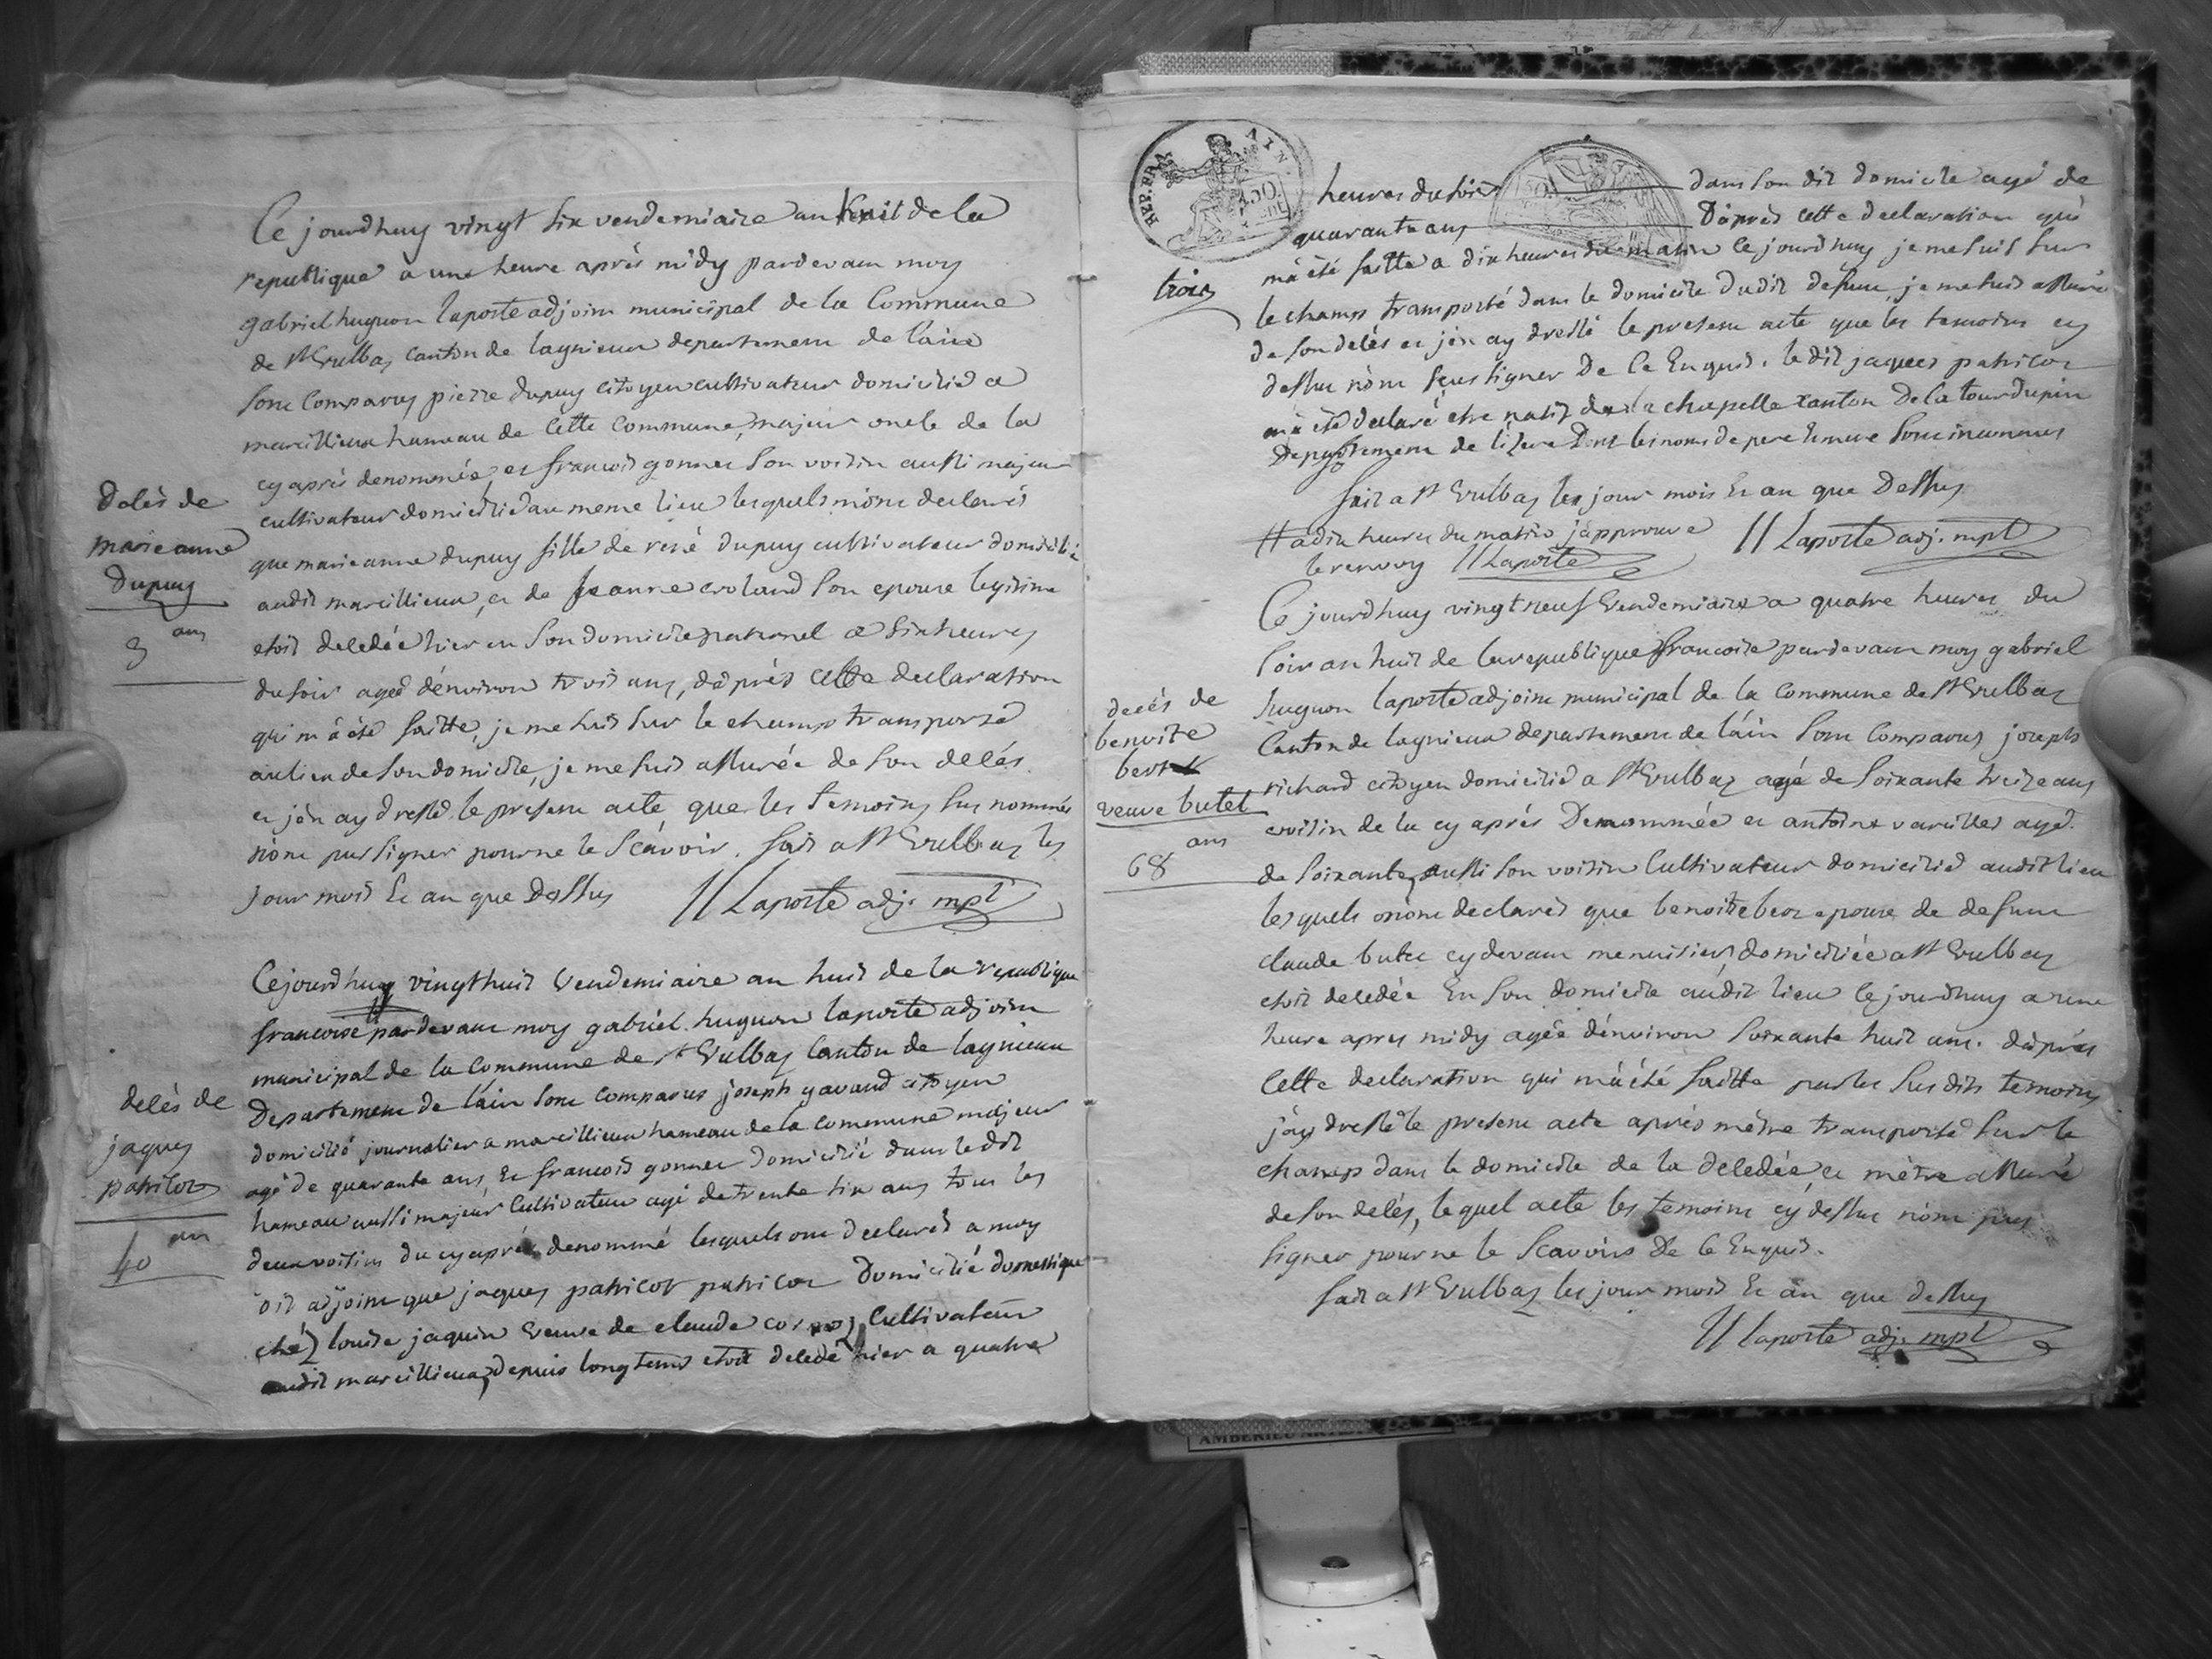 Ce jourdhuy vingt six vendemiaire an huit de la
republique a une heure aprés midy pardevant moy
gabriel huguon laporte adjoint municipal de la Commune
de St Vulbas canton de lagnieux departement de l'ain
sont Comparus pierre dupuy citoyen cultivateur domicilié a
marcillieux hameau de Cette Commune, majeur oncle de la
cy aprés denommée, et francois gonnet son voisin aussi majeur
decés de
cultivateur domicilié au meme lieu lesquels m'ont declarés
marie anne
que marie anne dupuy fille de rené dupuy cultivateur domicilié
dupuy
audit marcillieux, et de jeanne son epouse legitime
3 ans
etoit decedée hier en son domicile paternel a six heures
du soir agée d'environ trois ans, d'aprés cette declaration
qui m'a été faitte, je me suis sur le champ transporté
au lieu de son domicile, je me suis assurée de son decés
et j'en ay dressé le present acte que les temoins sus nommés
n'ont pas signer pour ne le scavoir. fait a St Vulbas les
jour mois & an que dessus H Laporte adj. mpl
Ce jourdhuy vingt huit Vendemiaire an huit de la republique
francoise pardevant moy gabriel huguon laporte adjoint
municipal de la Commune de St Vulbas Canton de lagnieux
decés de
Departement de l'ain sont comparus joseph gavand citoyen
domicilié journalier a marcillieux hameau de la commune majeur
jaques
agé de quarante ans, & francois gonnet domicilié dans ledit
patricot
hameau aussi majeur Cultivateur agé de trente six ans tous les
40 ans
deux voisins du cy aprés denommé lesquels ont declarés a moy
dit adjoint que jaques patricot patricot domicilié domestique
chéz louise jaquin veuve de claude Cultivateur
audit marcillieux, depuis longtems etoit decedé hier a quatre
heures du soir dans son dit domicile agé de
quarante ans D'aprés cette declaration qui
m'a été faitte a dix heures du matin ce jourdhuy je me suis sur
trois
le champ transporté dans le domicile dudit defunt, je me suis assuré
de son decés et j'en ay dressé le present acte que les temoins cy
dessus n'ont sçeu signer de ce Enquis. le dit jaques patricot
m'a été declaré etre natif de la chapelle canton De la tour dupin
Departement de l'izere Dont les noms de pere & mere sont inconnus
fait a St Vulbas les jour mois & an que Dessus
# a dix heures du matin j'approuve H Laporte adj. mpl
le renvoy H Laporte
Ce jourdhuy vingt neuf Vendemiaire a quatre heures du
soir an huit de la republique francoise pardevant moy gabriel
decés de
huguon laporte adjoint municipal de la Commune de St Vulbas
benoite
Canton de lagnieux departement de l'ain sont Comparus joseph
veuve butet
richard citoyen domicilié a St Vulbas agé de soixante treize ans
68 ans
voisin de la cy aprés Denommée et antoine vareilles agé
de soixante, aussi son voisin Cultivateur domicilié audit lieu
lesquels m'ont declarés que benoite epouse de defunt
claude butet cy devant menuisier, domiciliée a St Vulbas
etoit decedée En son domicile audit lieu ce jourdhuy a une
heure apres midy agée d'environ soixante huit ans. d'aprés
Cette declaration qui m'a été faitte par les susdits temoins
j'ay dressé le present acte aprés m'etre transporté sur le
champ dans le domicile de la decedée, et m'etre assuré
de son decés, lequel acte les temoins cy dessus n'ont pas
signer pour ne le scavoir De ce Enquis.
fait a St Vulbas les jour mois & an que dessus
H Laporte adj. mpl